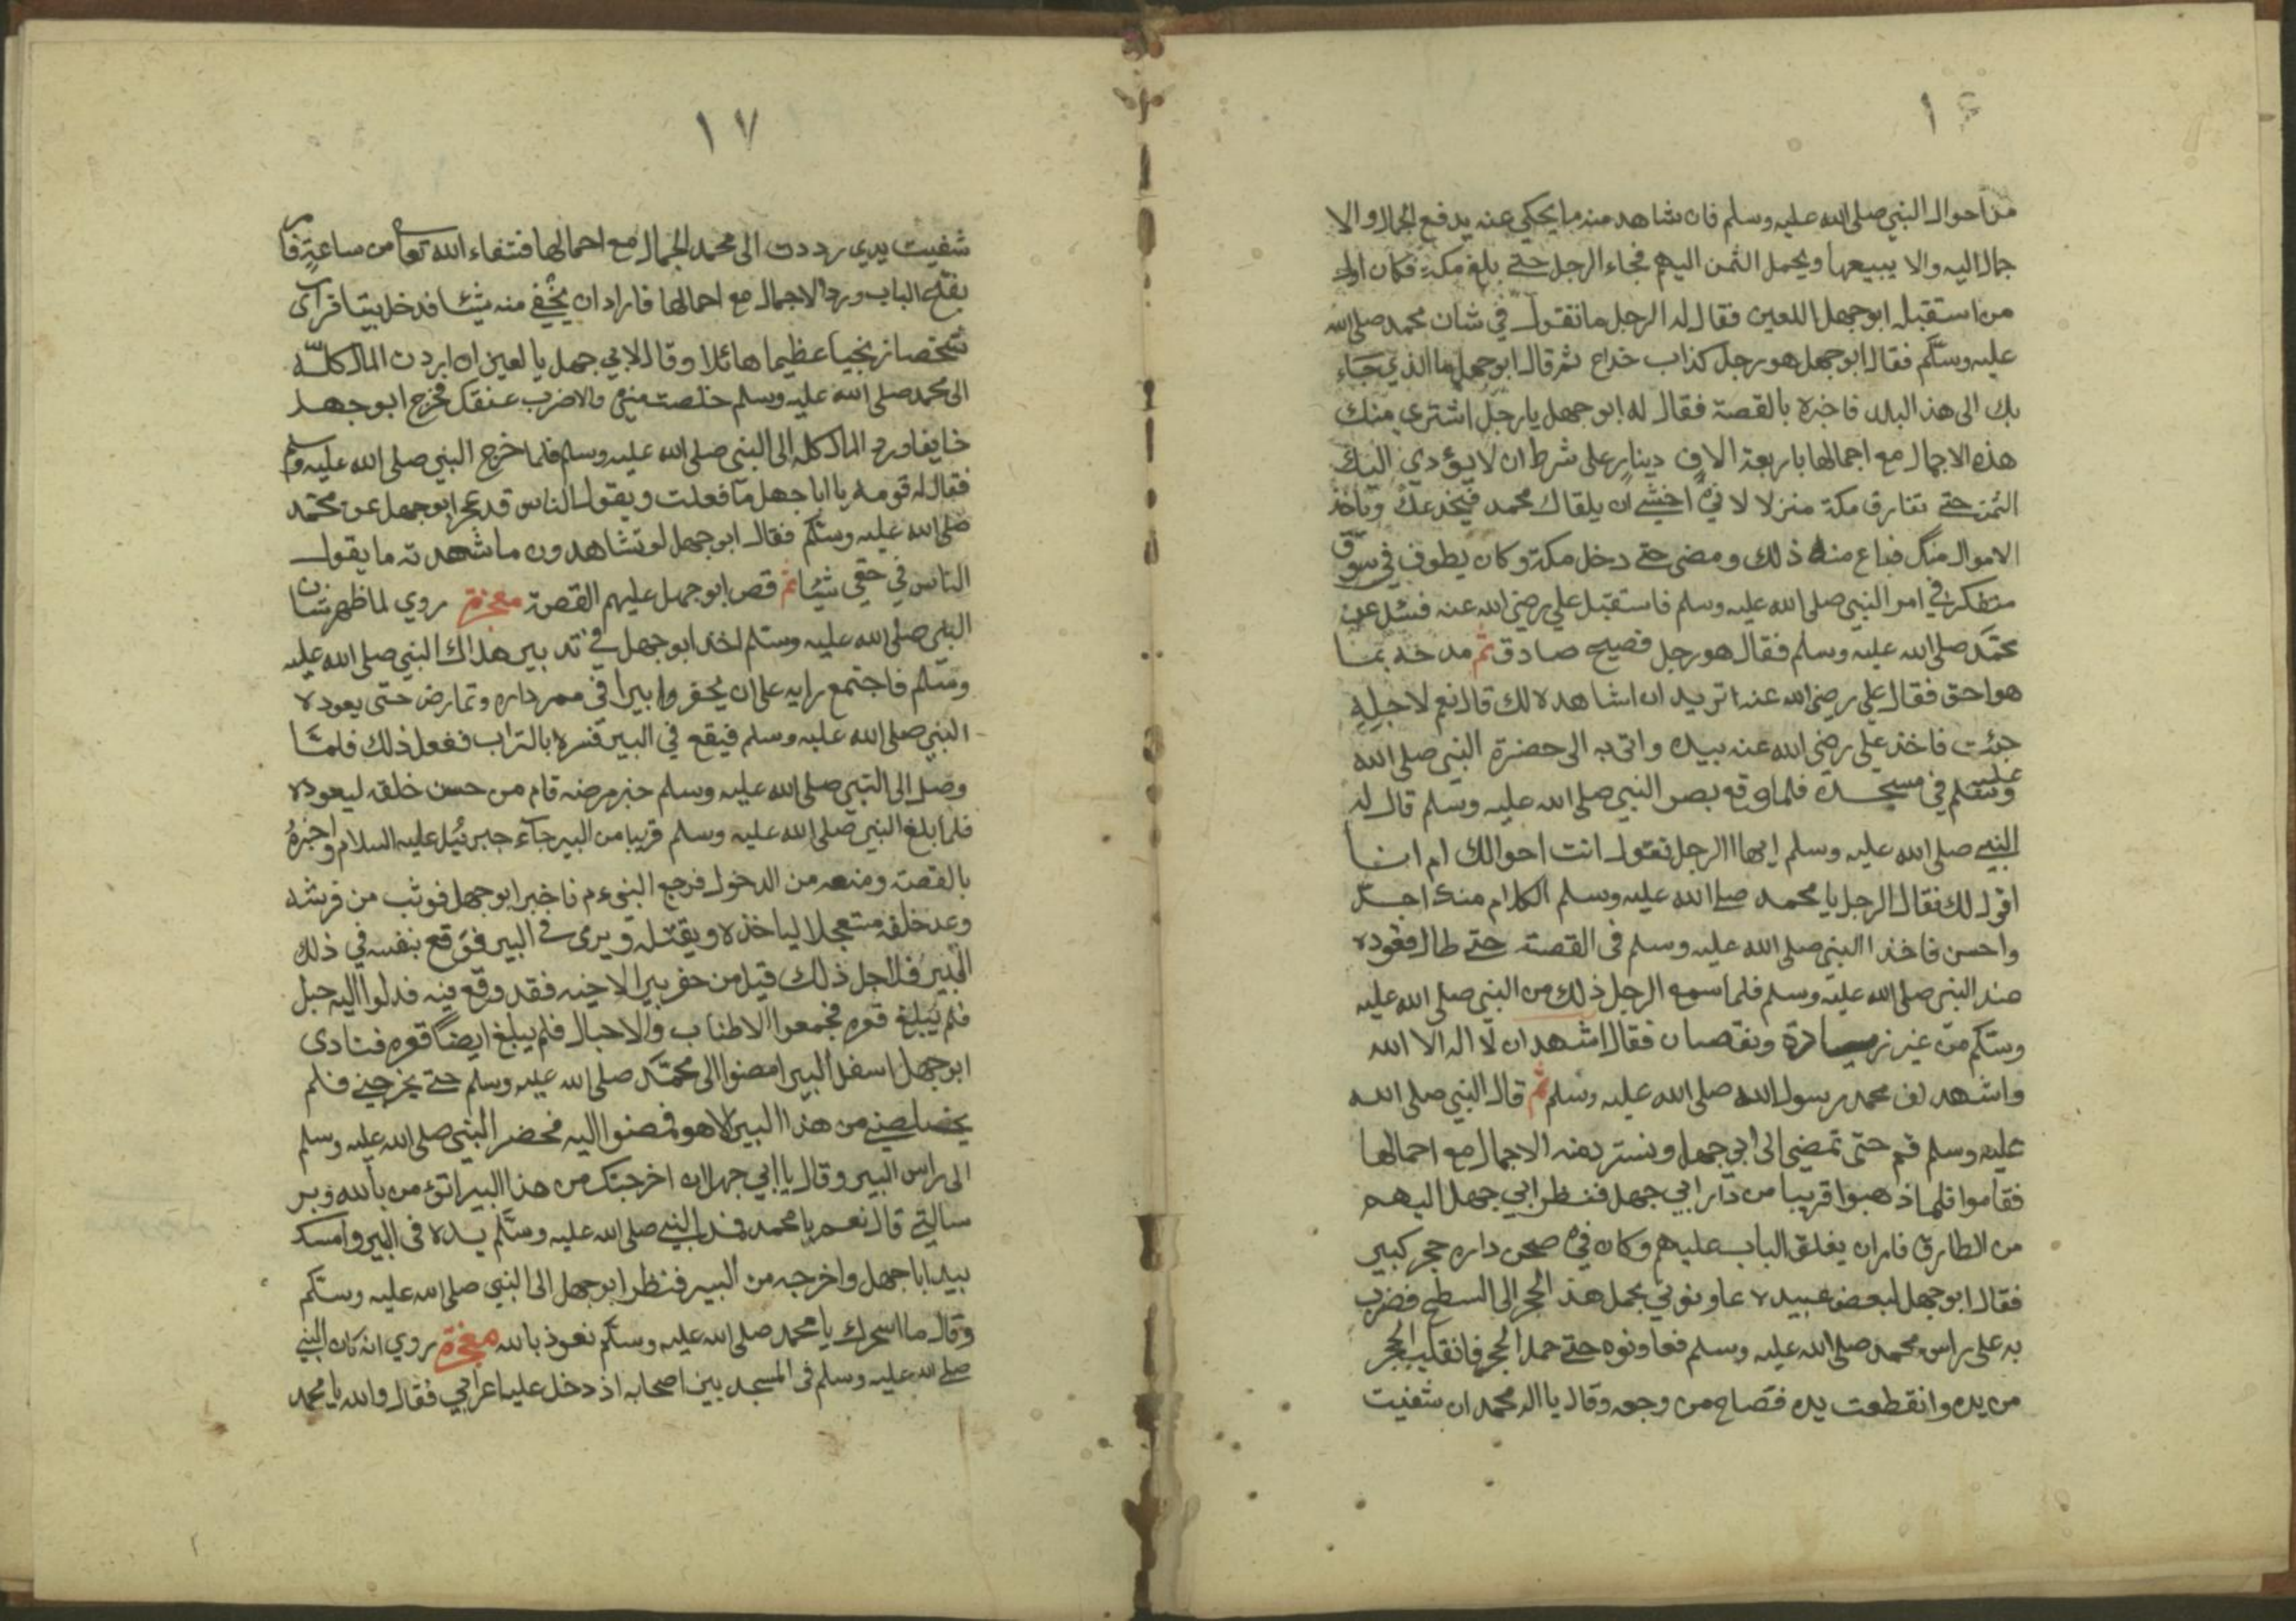 من احوال النبي صلى الله عليه وسلم فان شاهد منه ما يحكي عنه يدفع الجمال والا
جمال اليه والا يبيعها ويحمل الثمن اليهم فجاء الرجل حتى بلغ مكة فكان اول
من استقبله ابو جهل اللعين فقال له الرجل ما تقول في شان محمد صلى الله
عليه وسلم فقال ابو جهل هو رجل كذاب خداع ثم قال ابو جهل ما الذي جاء
بك الى هذ البلد فاخبره بالقصة فقال له ابو جهل يا رجل اشتري منك
هذه الاجمال مع اجمالها باربعة الاف دينار على شرط ان لا يؤدي اليك
الثمن حتى تفارق مكة منزلا لاني اخشى ان يلقاك محمد فيخدعك وياخذ
الاموال منك فباع منه ذلك ومضى حتى دخل مكة وكان يطوف في سوق
متفكر في امر النبي صلى الله عليه وسلم فاستقبل علي رضي الله عنه فسئل عن
محمد صلى الله عليه وسلم فقال هو رجل فصيح صادق ثم مدحه بما
هو احق فقال علي رضي الله عنه اتريد ان اشاهده لك قال نعم لاجله
جئت فاخذ علي رضي الله عنه بيده واتى به الى حضرة النبي صلى الله
عليه وسلم في مسجده فلما وقع بصر النبي صلى الله عليه وسلم قال له
النبي صلى الله عليه وسلم ايها الرجل تقول انت احوالك ام انا
اقول لك فقال الرجل يا محمد صلى الله عليه وسلم الكلام منك اجل
واحسن فاخذ النبي صلى الله عليه وسلم في القصة حتى طال قعوده
عند النبي صلى الله عليه وسلم فلما سمع الرجل ذلك من النبي صلى الله عليه
وسلم من غير زيادة ونقصان فقال اشهد ان لا اله الا الله
واشهد ان محمد رسول الله صلى الله عليه وسلم ثم قال النبي صلى الله
عليه وسلم قم حتى تمضي الى ابي جهل ونسترد منه الاجمال مع احمالها
فقاموا فلما ذهبوا قريبا من دار ابي جهل فنظر ابي جهل اليهم
من الطارق فاران يغلق الباب عليهم وكان في صحن داره حجر كبير
فقال ابو جهل لبعض عبيده عاونوني بحمل هذ الحجر الى السطح فضرب
به على راس محمد صلى الله عليه وسلم فعاونوه حتى حمل الحجر فانقلب الحجر
من يده وانقطعت يده فصاح من وجعه وقال يا اله محمد ان شفيت
١٧
شفيت يدي رددت الى محمد الجمال مع احمالها فشفاء الله تعا من ساعة فامر
بفتح الباب ورد الاجمال مع احمالها فاراد ان يخفي منه شيئا فدخل بيتا فراى
شخصا زنجيا عظيما هائلا وقال لابي جهل يا لعين ان ارددت المال كله
الى محمد صلى الله عليه وسلم خلصت مني والا ضرب عنقك فخرج ابو جهل
خايفا ورد المال كله الى النبي صلى الله عليه وسلم فلما خرج النبي صلى الله عليه وسلم
فقال له قومه يا ابا جهل ما فعلت ويقول الناس قد عجز ابو جهل عن محمد
صلى الله عليه وسلم فقال ابو جهل لو تشاهدون ما شهدته ما يقول
الناس في حقي شيئا ثم قص ابو جهل عليهم القصة معجزة روي لما ظهر شان
النبي صلى الله عليه وسلم اخذ ابو جهل في تدبير هلاك النبي صلى الله عليه
وسلم فاجتمع رايه على ان يحفروا بيرا في ممر داره وتمارض حتى يعوده
النبي صلى الله عليه وسلم فيقع في البير فنسره بالتراب ففعل ذلك فلما
وصل الى النبي صلى الله عليه وسلم خبر مرضه قام من حسن خلقه ليعوده
فلما بلغ النبي صلى الله عليه وسلم قريبا من البير جاء جبرئيل عليه السلام واخبره
بالقصة ومنعه من الدخول فرجع النبي ع م فاخبر ابو جهل فوثب من فرشه
وعد خلفه مستعجلا لياخذه ويقتله ويرمى في البير فوقع بنفسه في ذلك
البير فلاجل ذلك قيل من حفر بيرا لاخيه فقد وقع فيه فدلوا اليه حبل
فلم يبلغ قعره فجمعوا الاطناب والاحبال فلم يبلغ ايضا قعره فنادى
ابو جهل اسفل البير امضوا الى محمد صلى الله عليه وسلم حتى يخرجني فلم
يخلصني من هذا البير الا هو فمضوا اليه فحضر النبي صلى الله عليه وسلم
الى راس البير وقال يا ابي جهل ان اخرجتك من هذا البير اتؤمن بالله وبر
سالتي قال نعم يا محمد فمد النبي صلى الله عليه وسلم يده في البير وامسك
بيد ابا جهل واخرجه من البير فنظر ابو جهل الى النبي صلى الله عليه وسلم
وقال ما اسحرك يا محمد صلى الله عليه وسلم نعوذ بالله معجزة روي انه كان النبي
صلى الله عليه وسلم في المسجد بين اصحابه اذ دخل عليه اعرابي فقال والله يا محمد